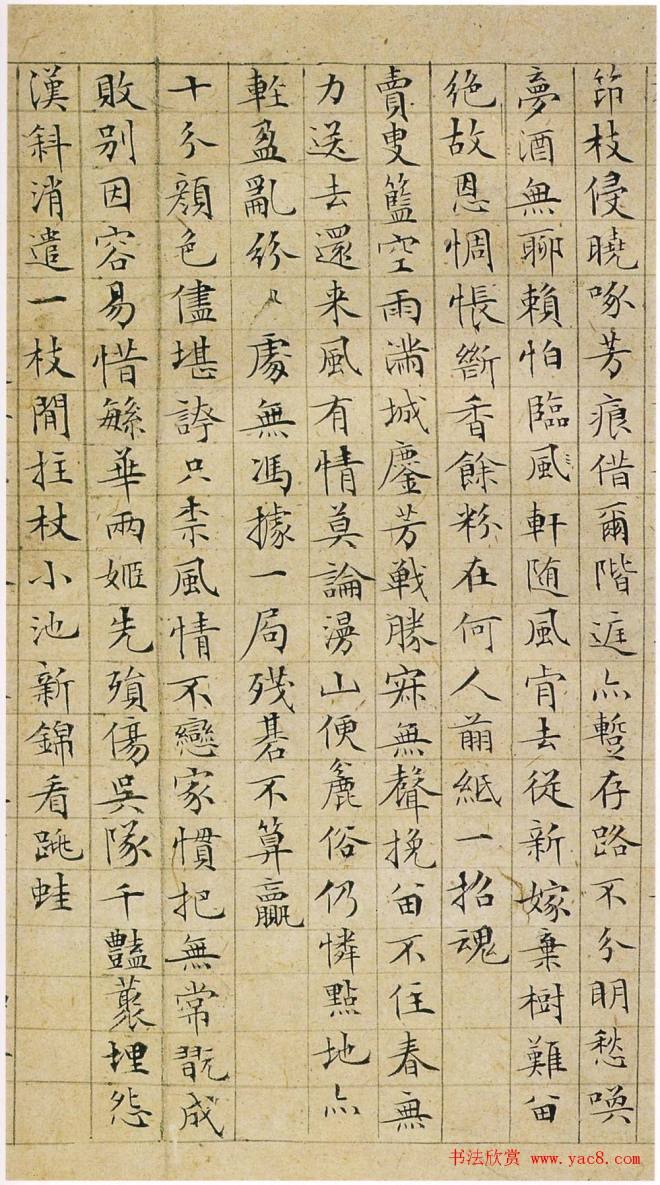 笻枝侵曉啄芳痕借爾階庭亦暫存路不分明愁喚
夢酒無聊賴怕臨風軒随風肯去從新嫁棄樹難畱
絶故恩惆悵斷香餘粉在何人剪紙一招魂
賣叟籃空雨滿城鏖芳戰勝寂無聲挽畱不住春無
力送去還来風有情莫論漫山便麄俗仍憐點地亦
輕盈亂紛〻處無馮據一局殘碁不算贏
十分顏色儘堪誇只柰風情不戀家慣把無常翫成
敗別因容易惜繁華兩姬先殞傷吳隊千豔叢埋怨
漢斜消遣一枝閒拄杖小池新錦看跳蛙
书法欣赏 www.yac8.com